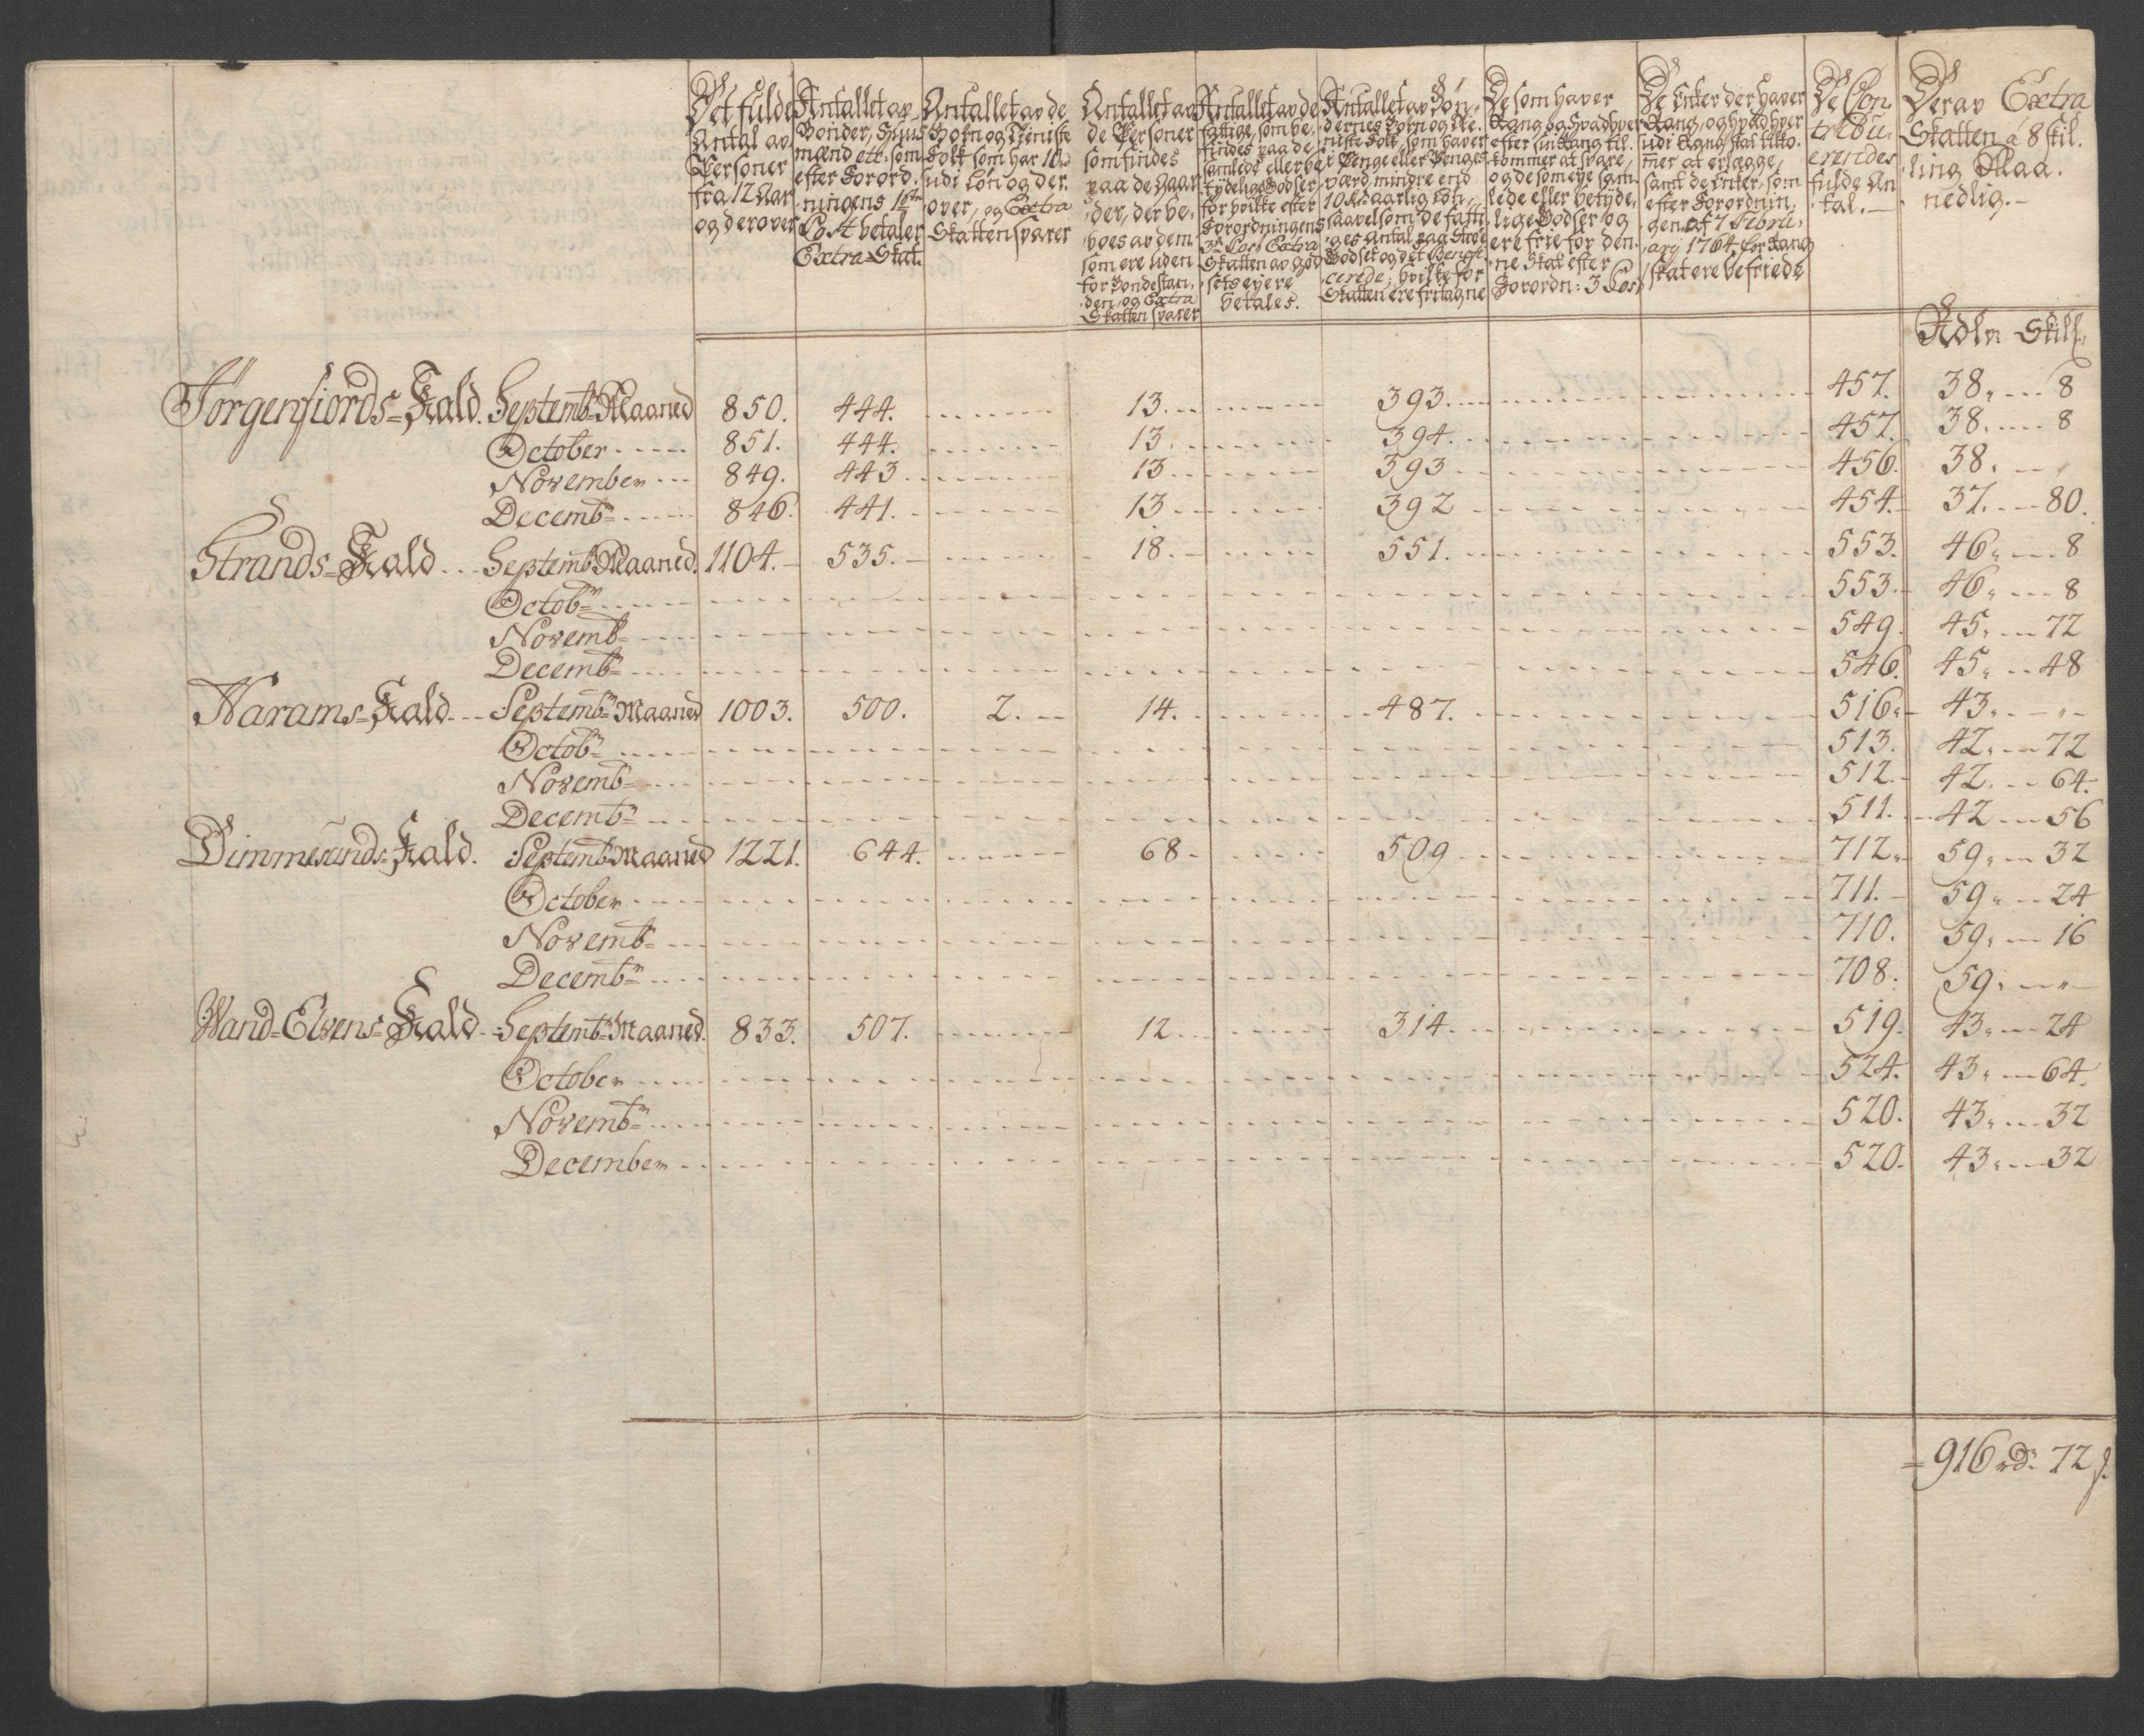 Det fulde
Antal av
Personer
fra 12 Aar
og derover
Antallet av
Bønder, Huus
mænd ett: som
efter Forord-
ningens 1ste
Post betaler
Extra-Skat.
Antallet av de
Børn og Tieniste
Folk som har 10
udi Løn og der
over, og Extra
Skatten svarer
Antallet av
de Personer
som findes
paa de Gaar
der, der be-
boes av dem
som ere uden
for Bondestan-
den, og Extra
Skatten svarer
Antallet av de
fattige, som be-
findes paa de
samlede eller be
tydelige Godser
for hvilke efter
Forordningens
3de Post Extra
Skatten av God
sets eyere
betales.
Antallet av Bøn-
dernes Børn og tie-
niste Folk, som haver
i Penge eller Penges
værd mindre end
10 aarlig Løn,
saavelsom de fatti-
ges Antal paa
Godset og det
cerede, hvilke for
Skatten ere fritagne
De som haver
Rang og hvad hver
efter sin Rang til-
kommer at svare,
og de som eye sam-
lede eller betyde-
lige Godser og
ere frie for den-
ne Skat efter
Forordn: 3 Post
De Enker der haver
Rang, og hvad hver
udi Rang Skat tilko-
mer at erlægge,
samt de Enker, som
efter Forordnin-
gen af 7 Febru-
ary 1764 for Rang
skat ere befriede
De Con
tribu-
erendes
fulde An
tal.
Derav Extra
Skatten á 8 Skil-
ling Maa-
nedlig.
Rdlr Skill.
Jørgenfiords-Skald. Septembr Maaned 850. 444. 13. 393. 457. 38. 8
October 851. 444. 13. 394. 457. 38. 8
November 849. 443 13 393 456. 38. "
Decembr 846. 441. 13 392 454. 37. 80.
Strands-Skald Septembr Maaned. 1104. 535. 18. 551. 553. 46. 8
Octobr 553. 46. 8
Novembr 549. 45. 72
Decembr 546. 45. 48
Harams-Skald Septembr Maaned 1003. 500. 2. 14. 487. 516. 43. "
Octobr 513. 42. 72
Novembr 512. 42. 64.
Decembr 511. 42 56
Dimmesunds-Skald. Septembr Maaned 1221. 644. 68 509 712. 59. 32
October 711. 59. 24
Novembr 710. 59. 16
Decembr 708. 59. "
Wand-Elvens-Skald Septembr Maaned. 833. 507. 12 314. 519. 43. 24
October 524. 43. 64.
Novembr 520. 43. 32
December 520. 43. 32
916 rd. 72 s.